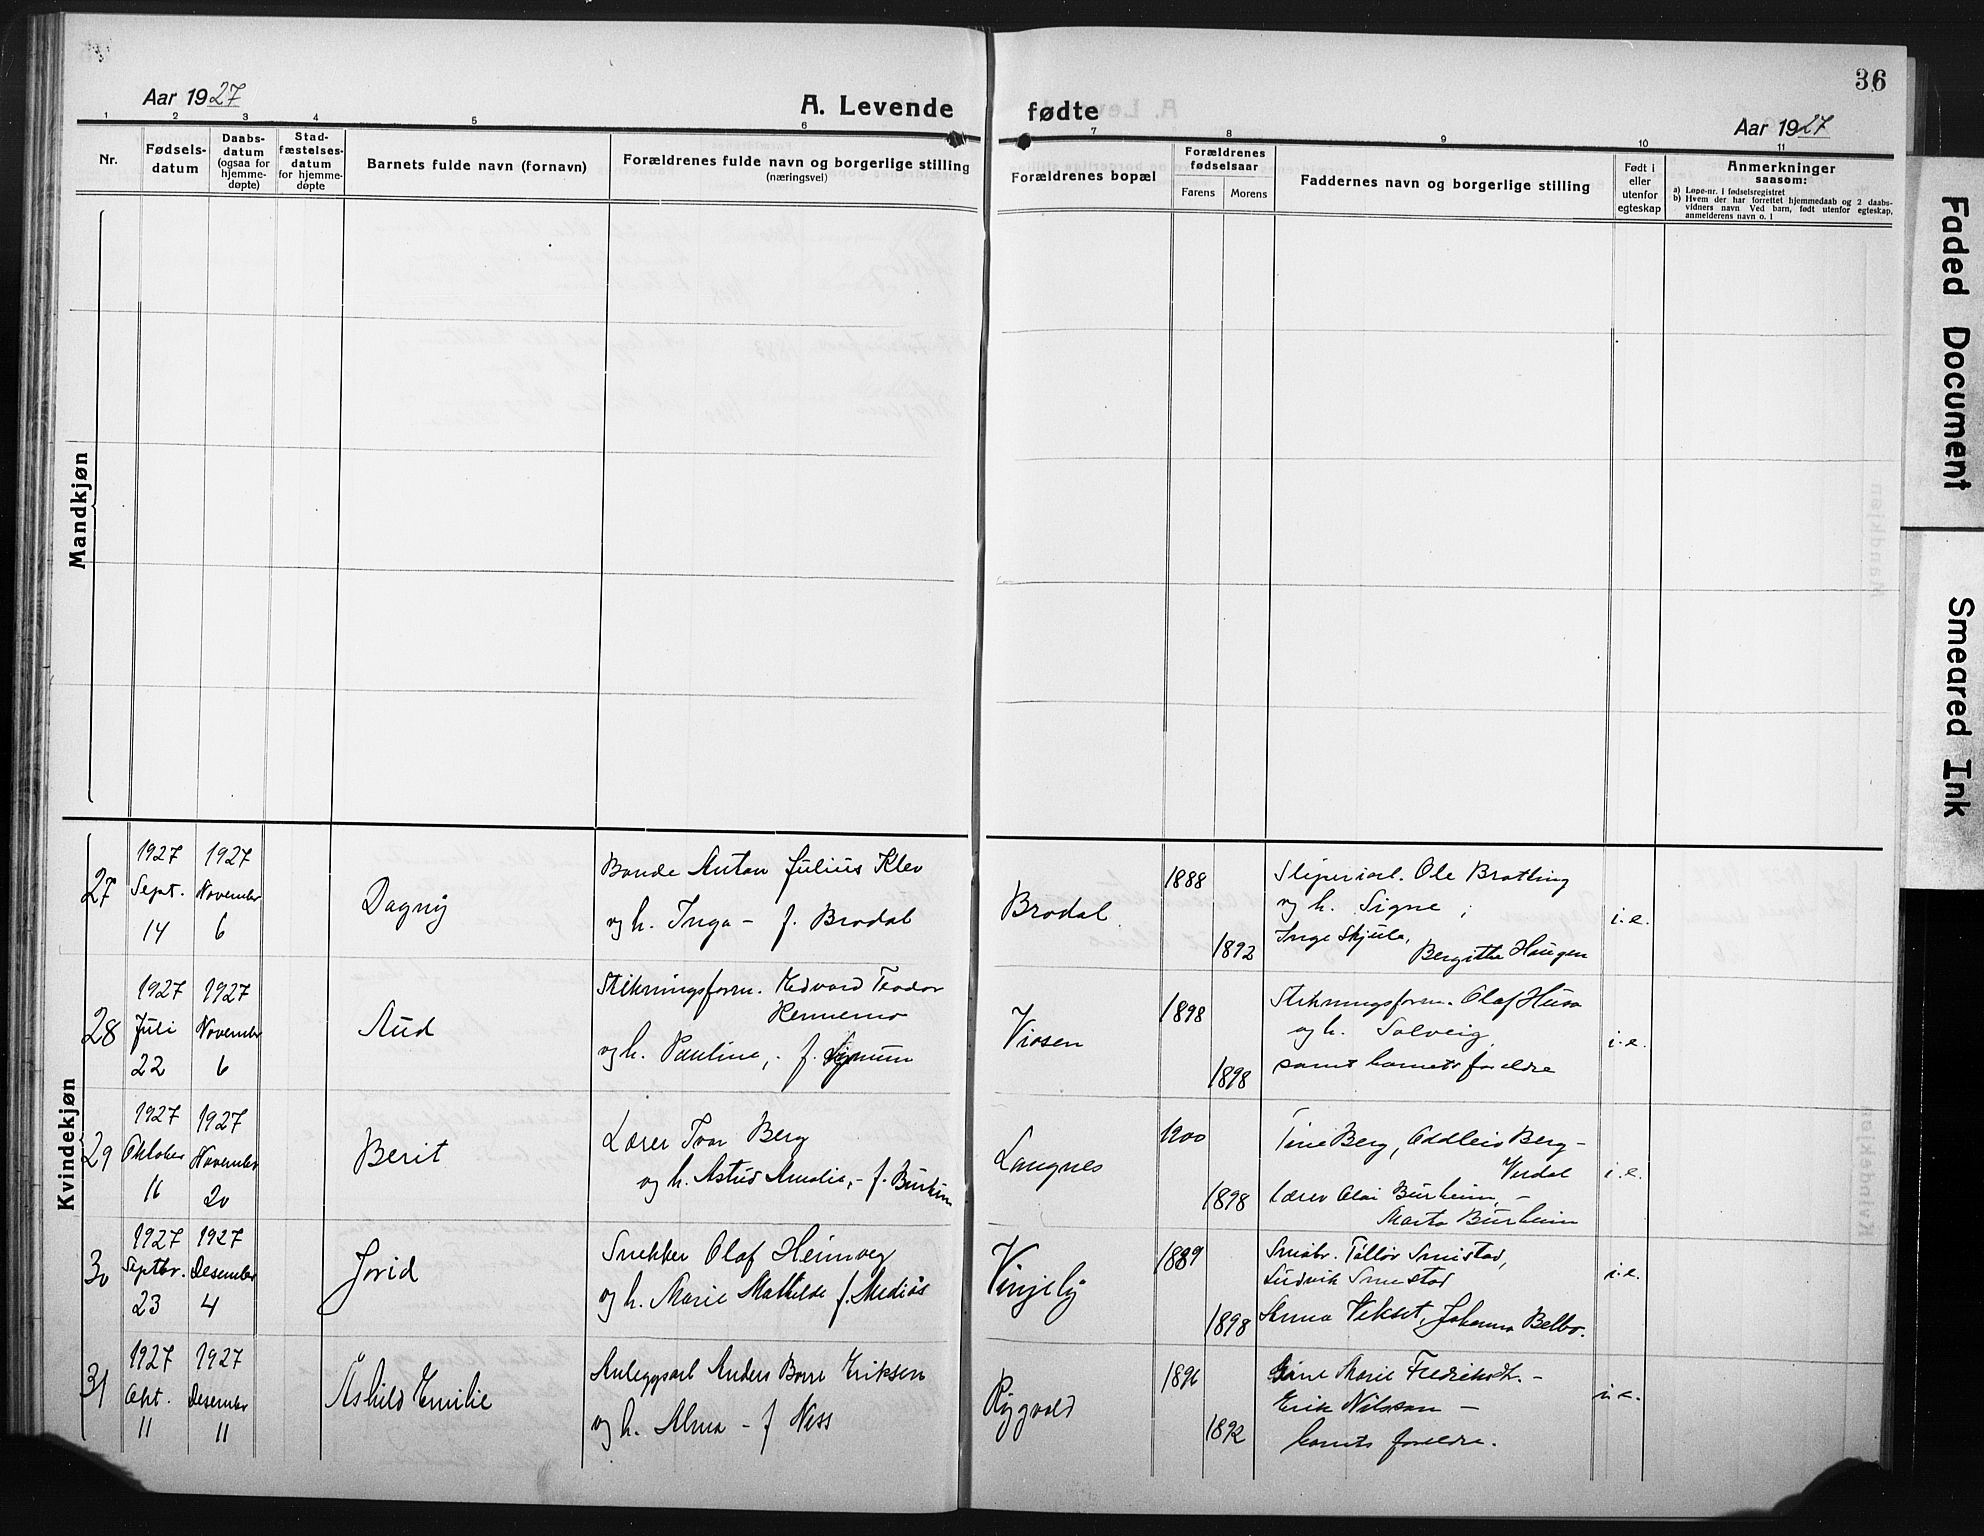 36
Aar 1927
A. Levende fødte
Aar 1927
1 2 3 4 5 6 7 8 9 10 11
Nr.
Fødsels-
datum
Daabs-
datum
(ogsaa for
hjemme-
døpte)
Stad-
fæstelses-
datum
for hjemme-
døpte
Barnets fulde navn (fornavn)
Forældrenes fulde navn og borgerlige stilling
(næringsvei)
Forældrenes bopæl
Forældrenes
fødselsaar
Farens Morens
Faddernes navn og borgerlige stilling
Født i
eller
utenfor
egteskap
Anmerkninger
saasom:
a) Løpe-nr. i fødselsregistret
b) Hvem der har forrettet hjemmedaab og 2 daabs-
vidners navn Ved barn, født utenfor egteskap,
anmelderens navn o. l
Mandkjøn
Kvindekjøn
27
1927
Sept.
14
1927
November
6
Dagny
Bonde Anton Julius Klev
og h. Inga - f. Brodal
Brodal
1888
1892
Sliperiarb. Ole Bratling
og h. Signe,
Inge Skjule,
Bergitha Haugen
i.e.
28
1927
Juli
22
1927
November
6
Aud
Stikningsform. Edvard Teodor
Hennemo
og h. Pauline, - f.
Viosen
1898
1898
Stikningsform. Olaf Husa
og h. Solveig
samt barnets foreldre
i.e.
29
1927
Oktober
16
1927
November
20
Berit
Lærer Ivar Berg
og h. Astrid Amalie, - f. Burheim
Langnes
1900
1898
Tine Berg, Oddleiv Berg -
Verdal
Lærer Olai Burheim, -
Marta Burheim
i.e.
30
1927
Septbr.
23
1927
Desember
4
Jorid
Snekker Olaf Heimveg
og h. Marie Mathilde f. Mediås
Vinjeli
1889
1898
Småbr. Tollev Smistad,
Ludvik Smistad
Anna Vekset, Johanna Belbo.
i.e.
31
1927
Okt.
11
1927
Desember
11
Åshild Emilie
Anleggsarb Anders Borre Eriksen
og h. Alma - f Ness
Rygvold
1896
1892
Marie Fredriksdt. -
Erik Nilsson -
barnets foreldre.
i.e.
Faded Document
Smeared Ink